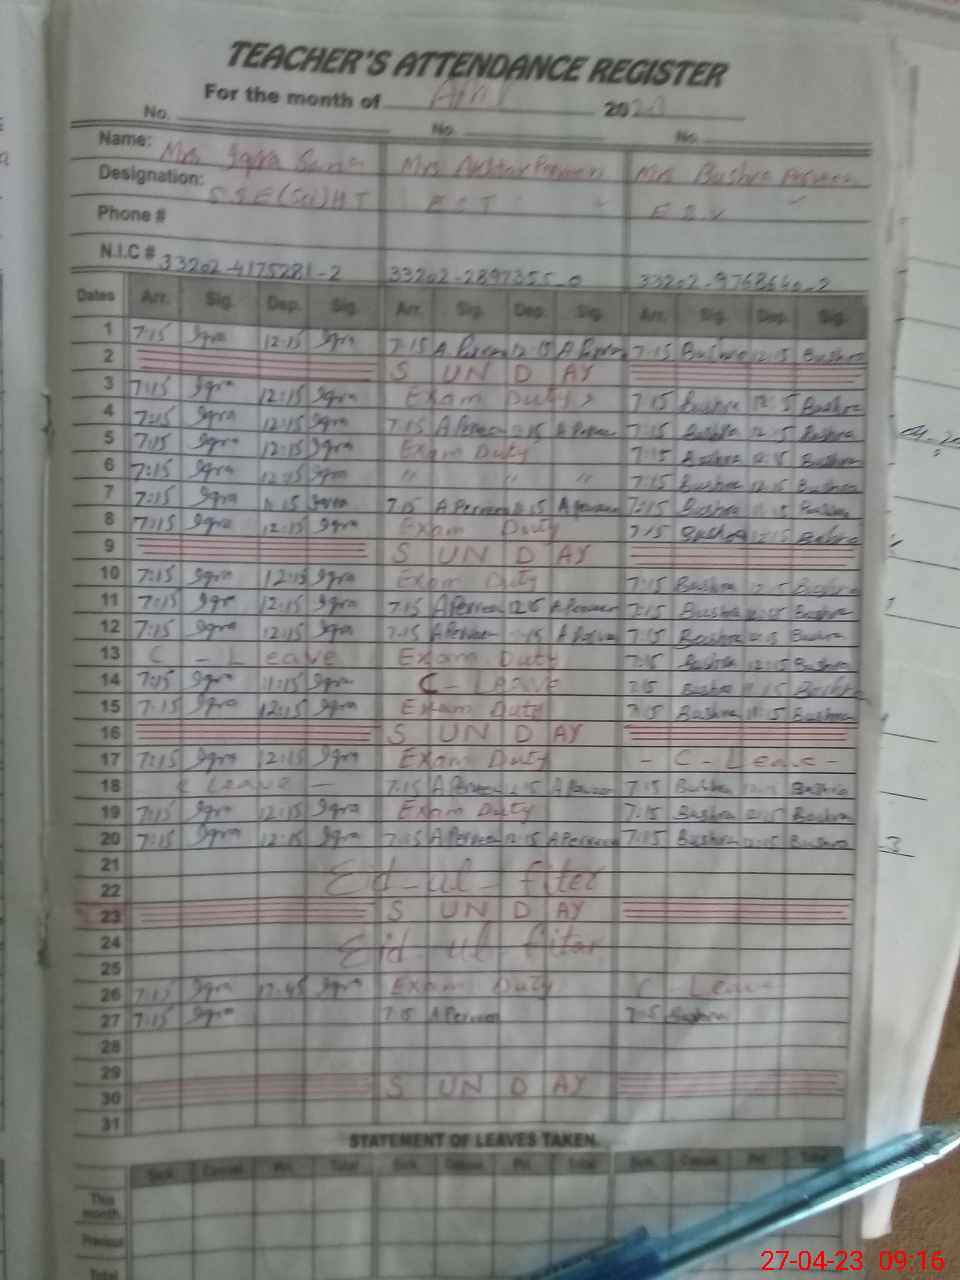 TEACHER'S ATTENDANCE REGISTER
For the month of April 20
No. No. No.
Name: Mrs Iqra Mrs Mrs Bushra
Designation: S.S.E(Sci)HT EST
Phone #
N.I.C # 33202-4175281-2 33202-2897355-0
Dates Arr. Sig. Dep. Sig. Arr. Sig. Dep. Sig. Arr. Sig. Dep. Sig.
1 7:15 Iqra 12:15 Iqra 7:15 A.Perveen 12:15 A Perveen 7:15 Bushra 12:15 Bushra
2 SUNDAY
3 7:15 Iqra 12:15 Iqra Exam Duty 7:15 Bushra 12:15 Bushra
4 7:15 Iqra 12:15 Iqra 7:15 A Perveen 12:15 A Perveen 7:15 Bushra 12:15 Bushra
5 7:15 Iqra 12:15 Iqra Exam Duty 7:15 Bushra 12:15 Bushra
6 7:15 Iqra 12:15 Iqra " " " 7:15 Bushra 12:15 Bushra
7 7:15 Iqra 11:15 Iqra 7:15 A Perveen 11:15 A Perveen 7:15 Bushra 11:15 Bushra
8 7:15 Iqra 12:15 Iqra Exam Duty 7:15 Bushra 12:15 Bushra
9 SUNDAY
10 7:15 Iqra 12:15 Iqra Exam Duty 7:15 Bushra Bushra
11 7:15 Iqra 12:15 Iqra 7:15 A Perveen 12:15 A Perveen 7:15 Bushra Bushra
12 7:15 Iqra 12:15 Iqra 7:15 A Perveen A Perveen 7:15 Bushra Bushra
13 C - Leave Exam Duty 7:15 Bushra 12:15 Bushra
14 7:15 Iqra 11:15 Iqra C - Leave 7:15 Bushra 11:15 Bushra
15 7:15 Iqra 12:15 Iqra Exam Duty 7:15 Bushra Bushra
16 SUNDAY
17 7:15 Iqra 12:15 Iqra Exam Duty - C - Leave -
18 C Leave - 7:15 A Perveen A Perveen 7:15 Bushra Bushra
19 7:15 Iqra 12:15 Iqra Exam Duty 7:15 Bushra Bushra
20 7:15 Iqra 12:15 Iqra 7:15 A Perveen 12:15 A Perveen 7:15 Bushra 12:15 Bushra
21
22 Eid-ul-fiter
23 SUNDAY
24 Eid-ul-fitar
25
26 7:15 Iqra 12:45 Iqra Exam Duty C - Leave
27 7:15 Iqra 7:15 A Perveen 7:15 Bushra
28
29
30 SUNDAY
31
STATEMENT OF LEAVES TAKEN.
Sick. Casual. Pri. Total Sick. Casual. Pri. Total Sick. Casual. Pri. Total
This month
Previous
Total
27-04-23 09:16